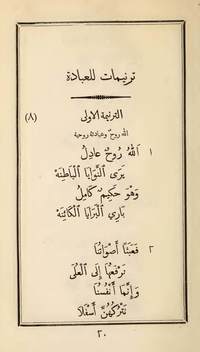 ترنيمات للعبادة
الترنيمة الاولى (٨)
الله روح وعبادته روحية
١ اَللهُ رُوحٌ عَادِلُ
يَرَى النَّوَايَا الْبَاطِنَهْ
وَهْوَ حَكِيمٌ كَامِلُ
بَارِي الْبَرَايَا الْكَائِنَهْ
٢ فَعَبَثًا أَصْوَاتُنَا
نَرْفَعُهَا إِلَى الْعُلَى
وَإِنَّمَا أَنْفُسُنَا
نَتْرُكُهُنَّ أَسْفَلَا
٢٠